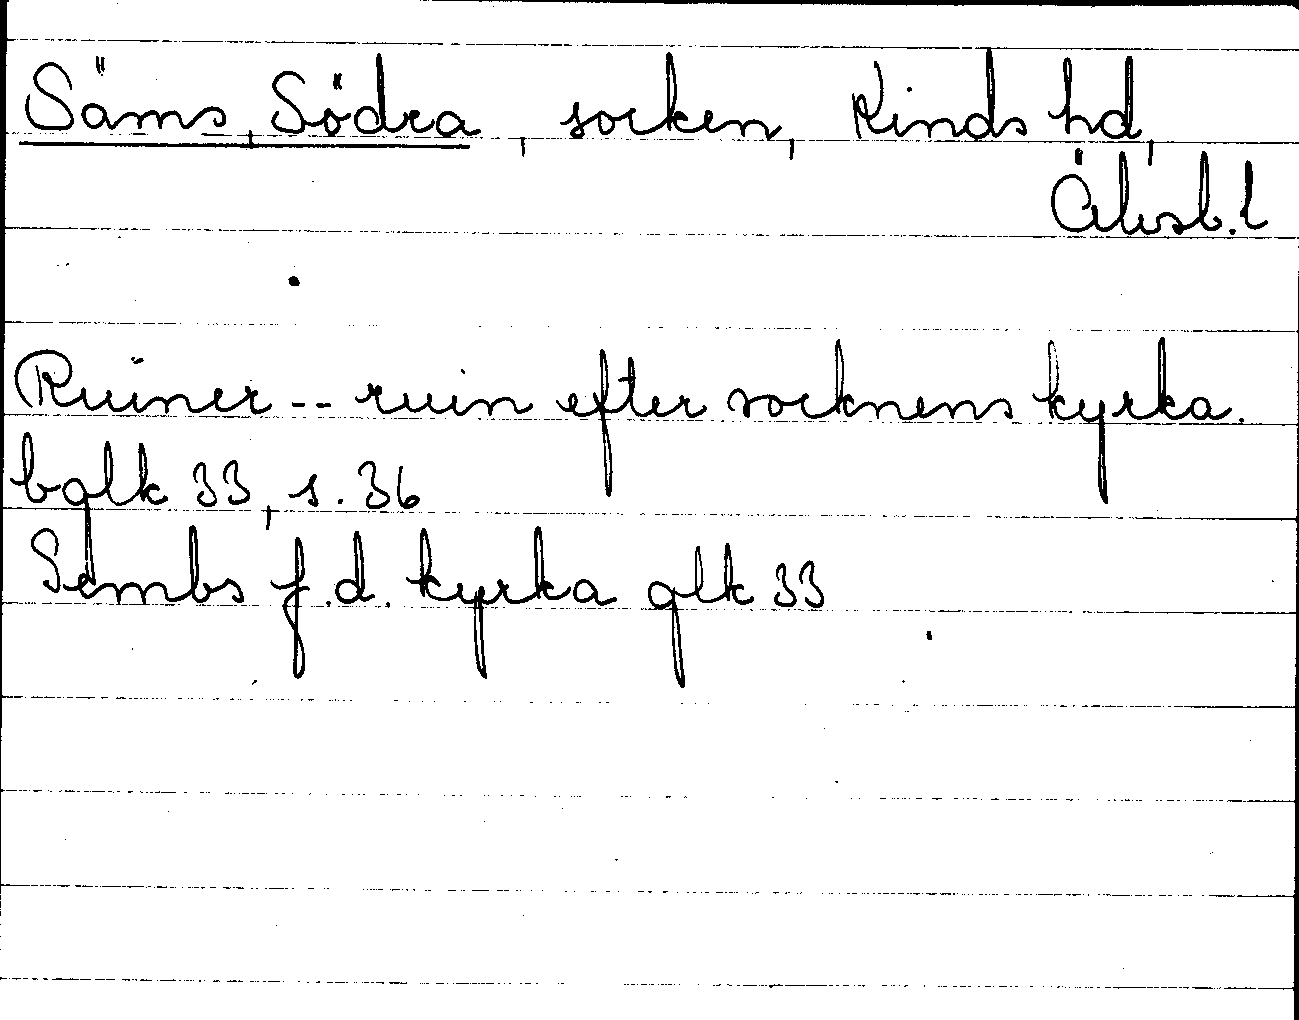 Säms, Södra, socken, Kinds hd,
Älvsb. l
Ruiner -- ruin efter socknens kyrka.
bglk 33, s. 36
Sembs f.d. kyrka glk 33